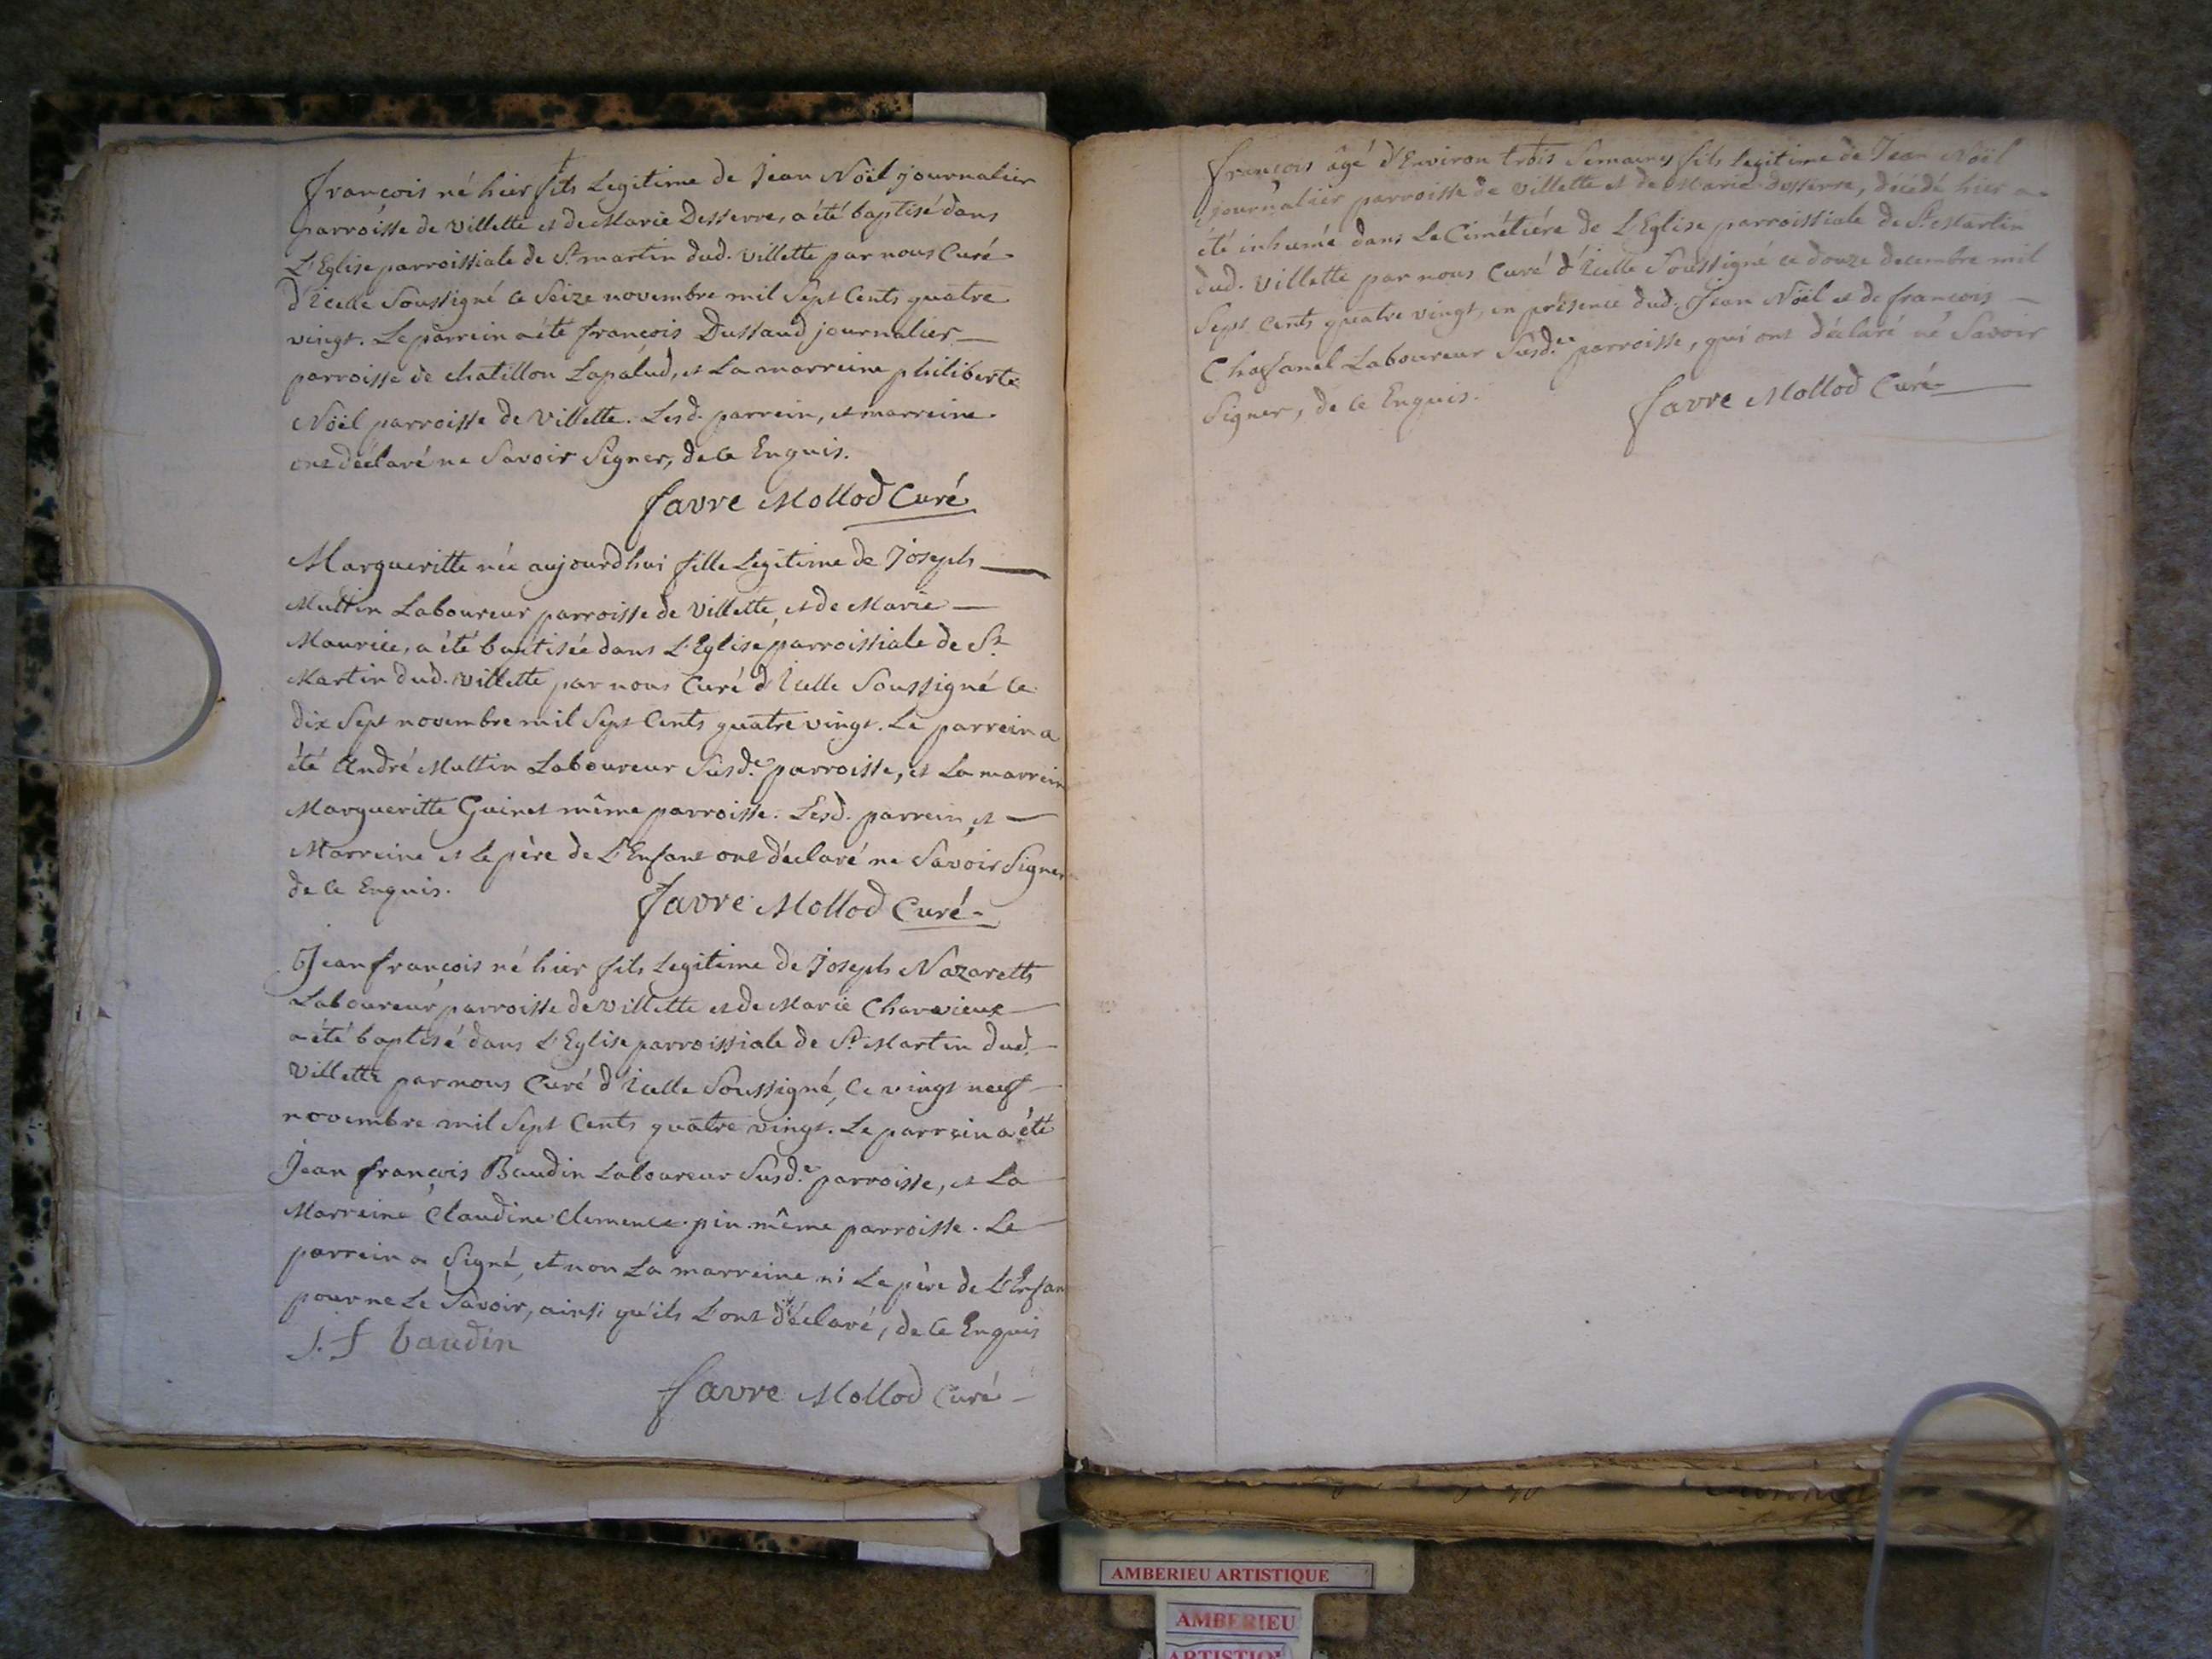 françois né hier fils Legitime de Jean Noël journalier
parroisse de villette et de Marie Desserre, a été baptisé dans
L'Eglise parroissiale de St martin dud. villette par nous Curé
d'icelle Soussigné le Seize novembre mil Sept Cents quatre
vingt. Le parrein a été françois Dussaud journalier
parroisse de chatillon Lapalud, et La marreine philiberte
Noël parroisse de Villette. Lesd. parrein, et marreine
ont déclaré ne Savoir Signer, de ce Enquis.
favre Mollod Curé
Margueritte née aujourdhui fille Legitime de Joseph
Multin Laboureur parroisse de Villette, et de Marie
Maurice, a été baptisée dans L'Eglise parroissiale de St
Martin dud. villette par nous Curé d'icelle Soussigné le
dix Sept novembre mil Sept Cents quatre vingt. Le parrein a
été André Multin Laboureur Susde parroisse, et La marrein
Margueritte Guinet même parroisse. Lesd. parrein, et
Marreine et Le père de L'Enfant ont déclaré ne Savoir Signer
de ce Enquis.
favre Mollod Curé
Jean françois né hier fils Legitime de Joseph Nazareth
Laboureur parroisse de villette et de Marie Charvieux
a été baptisé dans L'Eglise parroissiale de St Martin dud.
Villette par nous Curé d'icelle Soussigné, le vingt neuf
novembre mil Sept Cents quatre vingt. Le parrein a été
Jean françois Baudin Laboureur Susde parroisse, et La
Marreine Claudine Clemence pin même parroisse. Le
parrein a Signé, et non La marreine ni Le père de L'Enfan
pour ne Le Savoir, ainsi qu'ils L'ont déclaré, de ce Enquis
J. f baudin
favre Mollod Curé
françois âgé d'Environ trois Semaines fils legitime de Jean Noël
journalier parroisse de villette et de Marie desserre, décédé hier a
été inhumé dans Le Cimétiére de L'Eglise parroissiale de St Martin
dud. villette par nous Curé d'icelle Soussigné ce douze decembre mil
Sept Cents quatre vingt, en présence dud. Jean Noël et de françois
Chassanel Laboureur Susde parroisse, qui ont déclaré né Savoir
Signer, de ce Enquis.
favre Mollod Curé
AMBERIEU ARTISTIQUE
AMBERIEU
ARTISTIQU